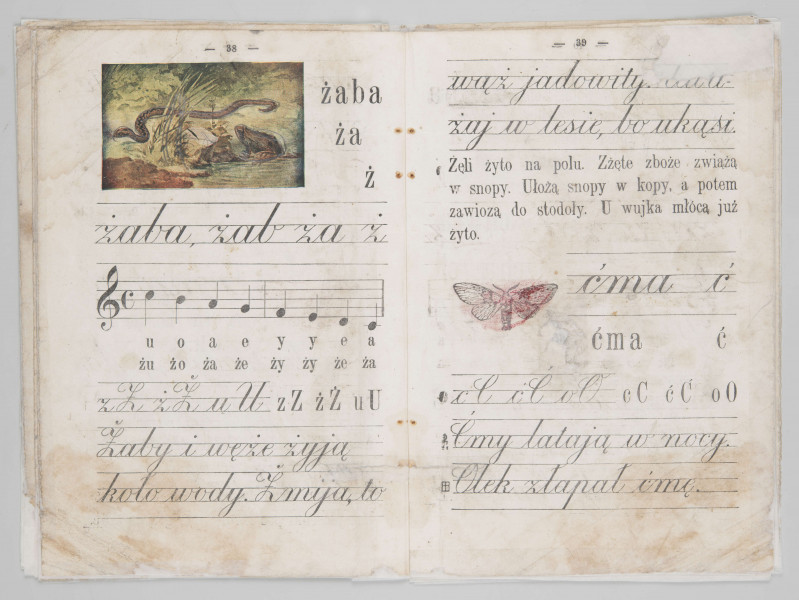 — 38 —
żaba
ża
ż
żaba, żab ża ż
u o a e y y e a
żu żo ża że ży ży że ża
z Z ż Ż u U z Z ż Ż u U
Żaby i węże żyją
koło wody. Żmija, to
— 39 —
wąż jadowity.
żaj w lesie, bo ukąsi.
Żęli żyto na polu. Zżęte zboże zwiążą
w snopy. Ułożą snopy w kopy, a potem
zawiozą do stodoły. U wujka młócą już
żyto.
ćma ć
ćma ć
c C ć Ć o O c C ć Ć o O
Ćmy latają w nocy.
Olek złapał ćmę.